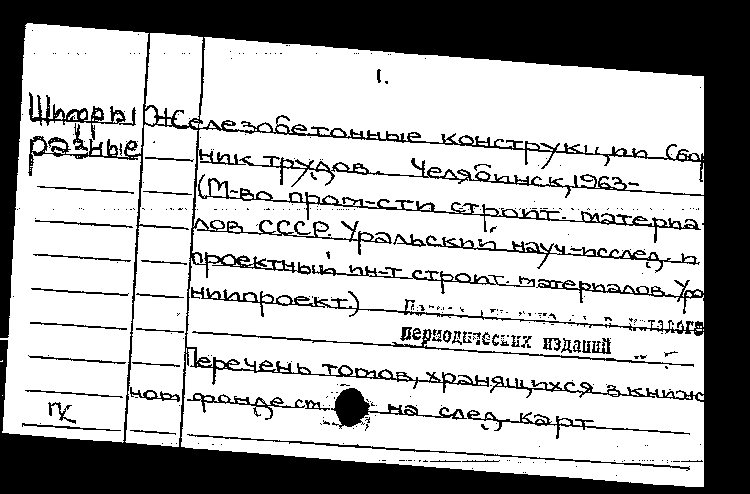 1.
Шифры Железобетонные конструкции Сбор
разные ник трудов. Челябинск, 1963-
(М-во пром-сти строит. материа-
лов СССР. Уральский науч-исслед. и
проектный ин-т строит. материалов. Ура
нипроект.)
каталоге
периодических изданий
Перечень томов, хранящихся в книж
ном фонде см. на след. карт
ГК